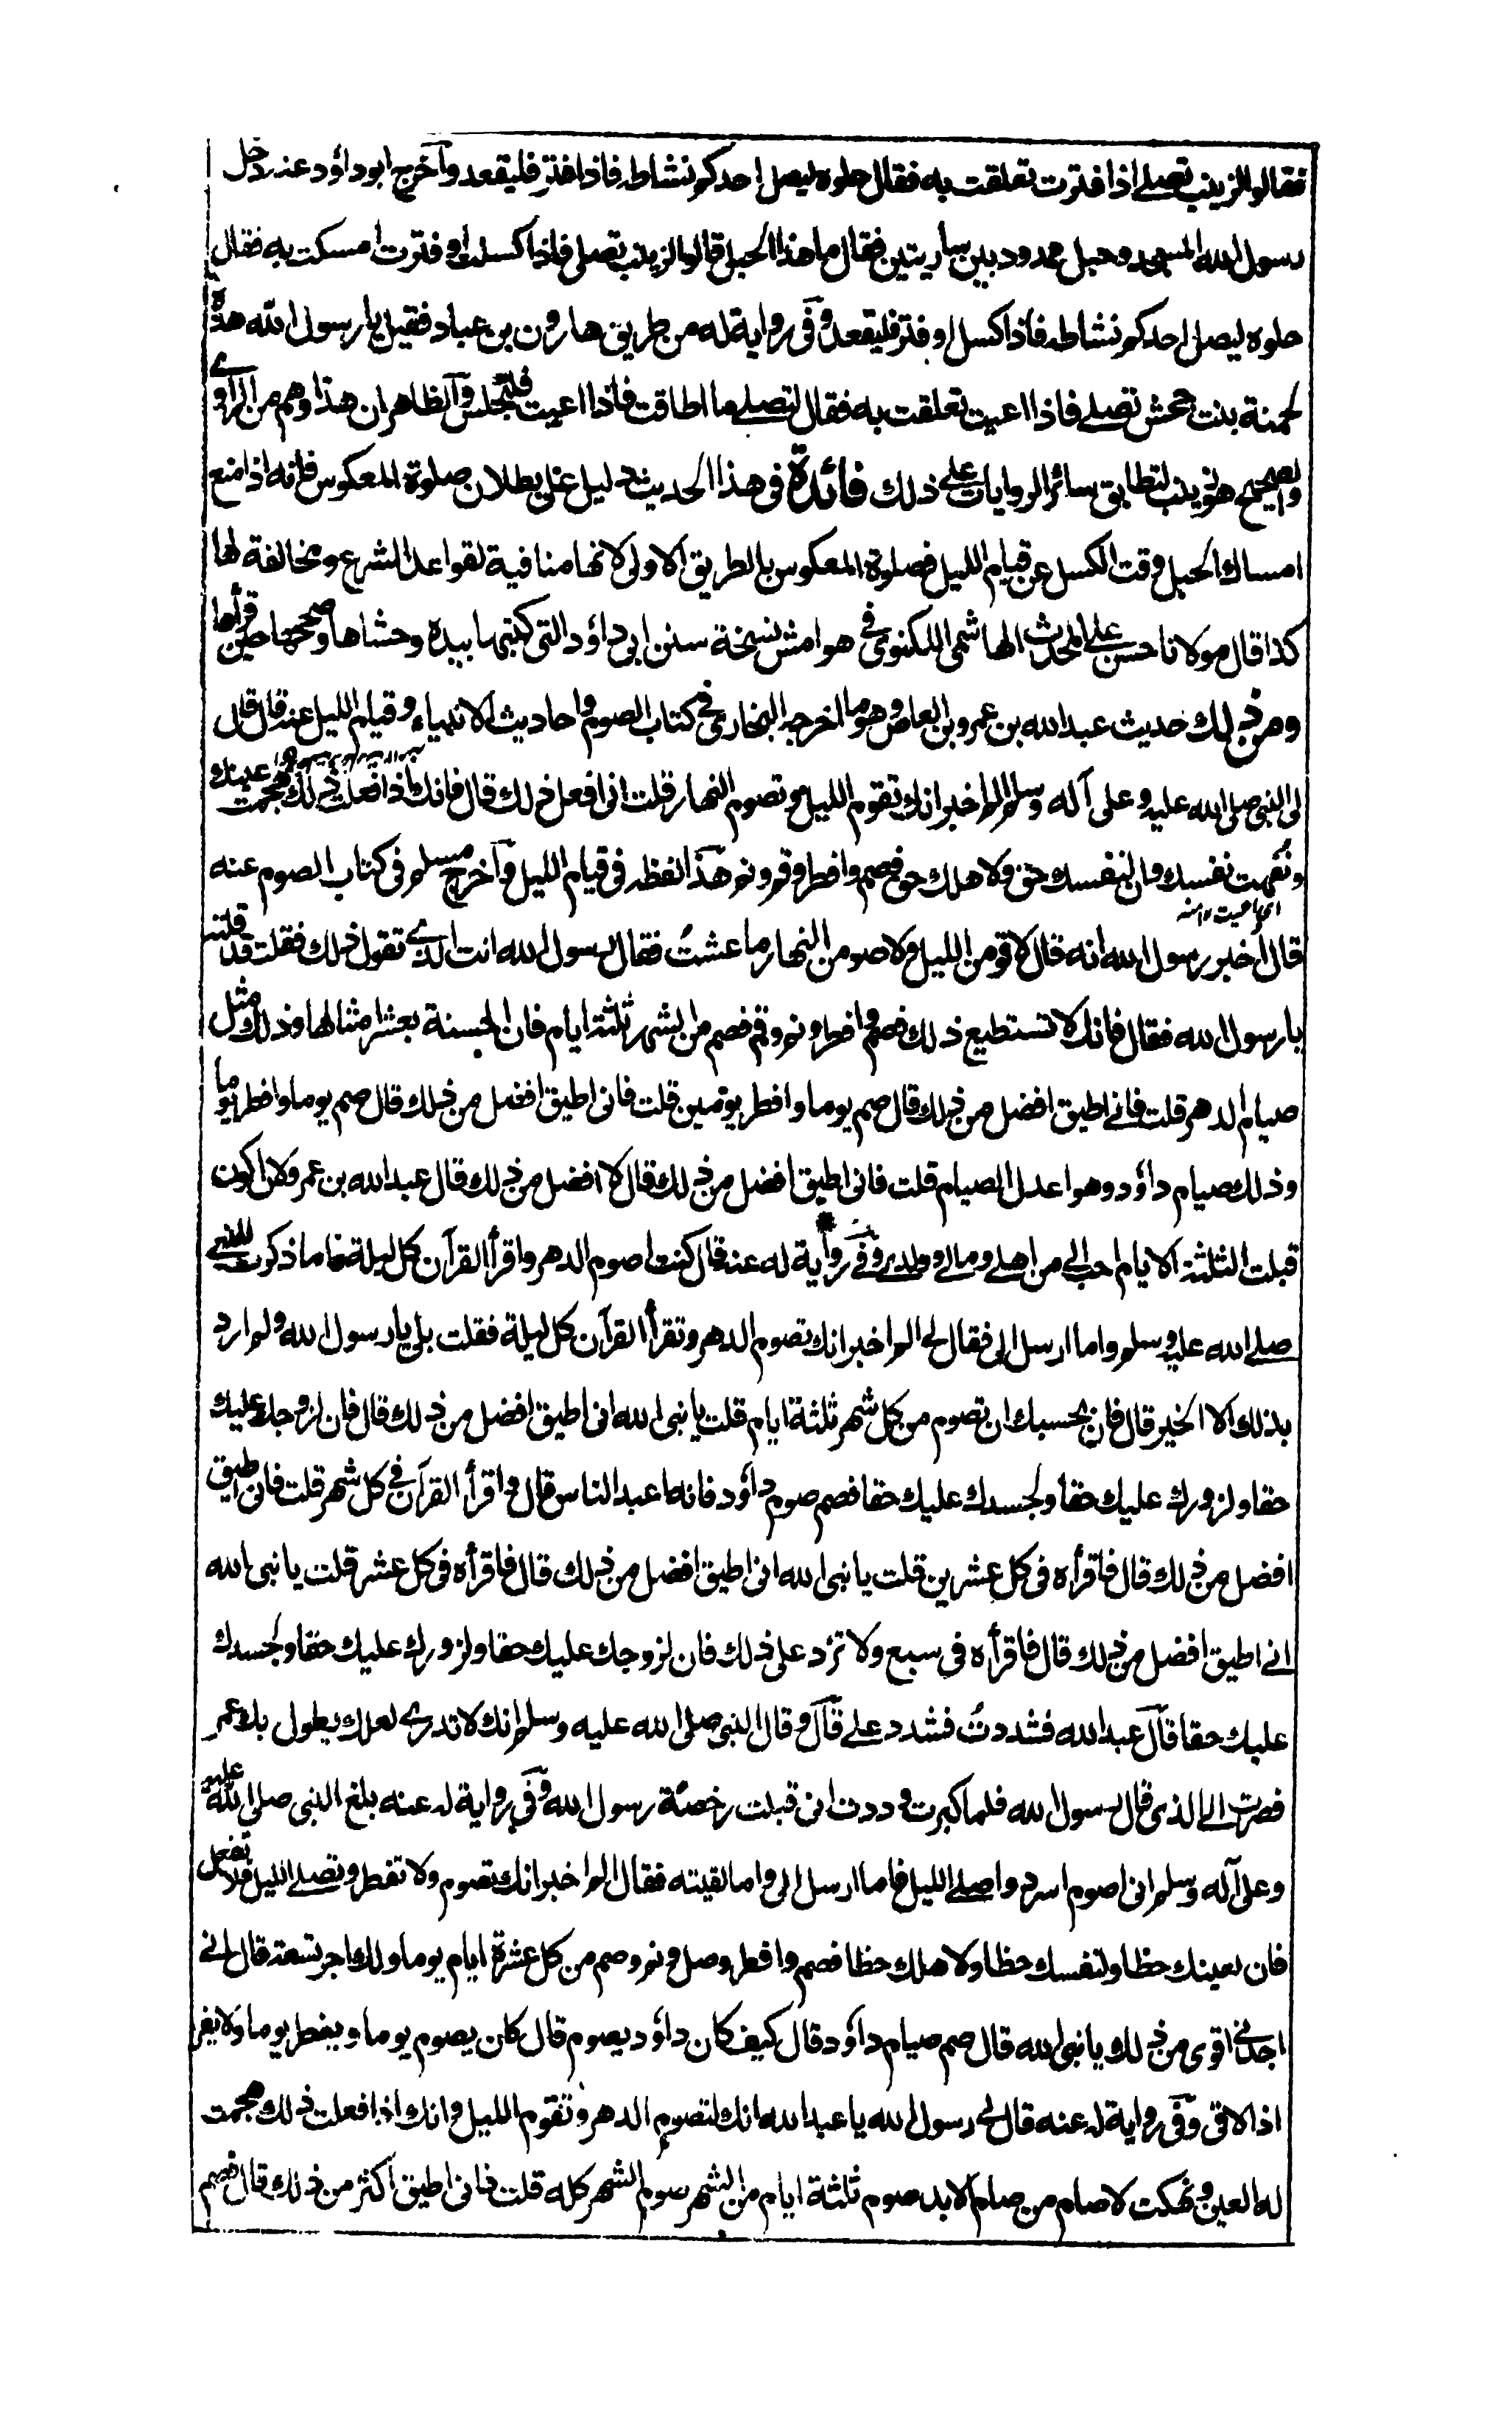 فقالوا لزينب تصلے اذا فترت تعلقت به فقال حلوه ليصل احدكم نشاطه فاذا فتر فليقعد وآخرج ابو داؤد عنه دخل
رسول الله المسجد وحبل ممدود بين ساريتين فقال ما هذا الحبل قالوا لزينب تصلى فاذا كسلت او فترت امسكت به فقال
حلوه ليصل احدكم نشاطه فاذا كسل او فتر فليقعد وفى رواية له من طريق هارون بن عباد فقيل يا رسول الله هذه
لحمنة بنت جحش تصلے فاذا اعيت تعلقت به فقال لتصلے ما اطاقت فاذا اعيت فلتجلس وآلظاهر ان هذا وهم من الراوے
والصحيح هو زينب لتطابق سائر الروايات على ذلك فائدة فى هذا الحديث دليل على بطلان صلوة المعكوس فانه اذا منع
امساك الحبل وقت الكسل عن قيام الليل فصلوة المعكوس بالطريق الاولى لانها منافية لقواعد الشرع ومخالفة لها
كذا قال مولانا حسن على المحدث الهاشمى اللكنوى فى هوامش نسخة سنن ابى داؤد التى كتبها بيده وحشاها وصححها حين قرأها
ومن ذلك حديث عبد الله بن عمرو بن العاص وهو ما اخرجه البخارى فى كتاب الصوم واحاديث الانبياء وقيام الليل عنه قال قال
لى النبى صلى الله عليه وعلى آله وسلم الم اخبر انك تقوم الليل وتصوم النهار قلت انى افعل ذلك قال فانك اذا فعلت ذلك هجمت عينك
ونفهت نفسك وان لنفسك حق ولاهلك حق فصم وافطر وقم ونم هذا لفظه فى قيام الليل وآخرج مسلم فى كتاب الصوم عنه
اى اعيت ١٢ منه
قال اخبر رسول الله انه قال لاقومن الليل ولاصومن النهار ما عشتُ فقال رسول الله انت الذے تقول ذلك فقلت قد قلته
يا رسول الله فقال فانك لا تستطيع ذلك فصم وافطر ونم وقم فصم من الشهر ثلثة ايام فان الحسنة بعشر امثالها وذلك مثل
صيام الدهر قلت فانے اطيق افضل من ذلك قال صم يوما وافطر يومين قلت فانى اطيق افضل من ذلك قال صم يوما وافطر يوما
وذلك صيام داؤد وهو اعدل الصيام قلت فانى اطيق افضل من ذلك قال لا افضل من ذلك قال عبد الله بن عمر ولان اكون
قبلت الثلثة الايام احب الى من اهلے ومالے وولدے وفے رواية له عنه قال كنت اصوم الدهر واقرأ القرآن كل ليلة فاما ذكرت للنبے
صلے الله عليه وسلم واما ارسل الى فقال لى الم اخبر انك تصوم الدهر وتقرأ القرآن كل ليلة فقلت بلى يا رسول الله ولم ارد
بذلك الا الخير قال فان بحسبك ان تصوم من كل شهر ثلثة ايام قلت يا نبى الله انى اطيق افضل من ذلك قال فان لزوجك عليك
حقا ولزورك عليك حقا ولجسدك عليك حقا فصم صوم داؤد فانه اعبد الناس قال واقرأ القرآن فى كل شهر قلت فانى اطيق
افضل من ذلك قال فاقرأه فى كل عشرين قلت يا نبى الله انى اطيق افضل من ذلك قال فاقرأه فى كل عشر قلت يا نبى الله
انے اطيق افضل من ذلك قال فاقرأه فى سبع ولا تزد على ذلك فان لزوجك عليك حقا ولزورك عليك حقا ولجسدك
عليك حقا قآل عبد الله فشددتُ فشدد علے قآل وقال النبى صلى الله عليه وسلم انك لا تدرے لعلك يطول بك عمر
فصرت الے الذى قال رسول الله فلما كبرت وددت انى قبلت رخصة رسول الله وفى رواية له عنه بلغ النبى صلى الله عليه
وعلى آله وسلم انى اصوم اسرد واصلے الليل فاما ارسل الى واما لقيته فقال الم اخبر انك تصوم ولا تفطر وتصلے الليل فلا تفعل
فان لعينك حظا ولنفسك حظا ولاهلك حظا فصم وافطر وصل ونم وصم من كل عشرة ايام يوما ولك اجر تسعة قال انے
اجدنے اقوى من ذلك يا نبى الله قال صم صيام داؤد قال كيف كان داؤد يصوم قال كان يصوم يوما ويفطر يوما ولا يفر
اذا لاقى وفى رواية له عنه قال لى رسول الله يا عبد الله انك لتصوم الدهر وتقوم الليل وانك اذا فعلت ذلك هجمت
له العين ونهكت لا صام من صام الابد صوم ثلثة ايام من الشهر صوم الشهر كله قلت فانى اطيق اكثر من ذلك قال فصم